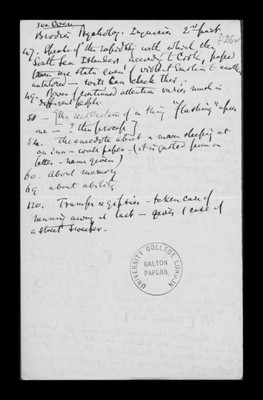 See Over
Brodie's Psychology. Inquiries 2nd part.
f26v
47. Speaks of the rapidity with which the
South Sea Islanders according to Cooke, passed
from one state of violent emotion to another
unaltered — with can check this.
49. Power of continued attention varies much in
different people
51 — The recollection of a thing "flashing" upon
one — ? the process
54. The anecdote about a man sleeping at
an inn — wall paper — (it is quoted from a
letter - name given)
60. About memory
69. about ability
120. Transfer of
running away at last — gives (case of
a street sweeper.
UNIVERSITY COLLEGE LONDON
GALTON
PAPERS